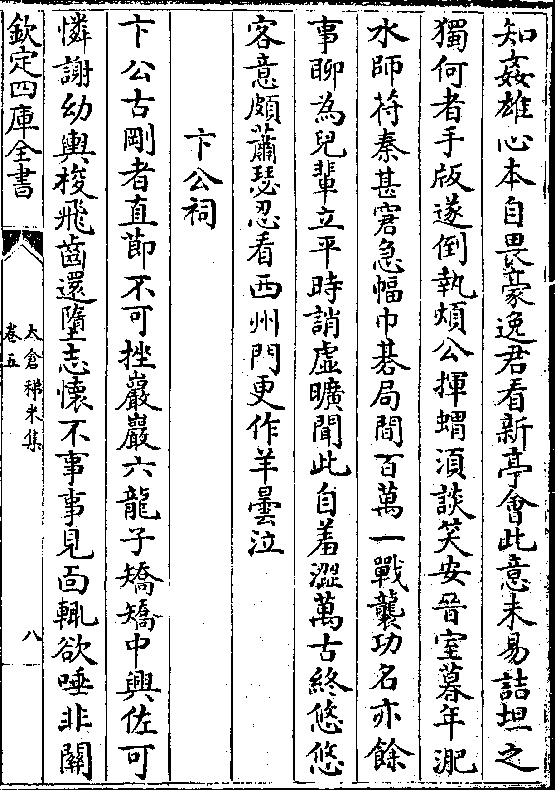 知姦雄心本自畏豪逸君看新亭會此意未易詰坦之
獨何者手版遂倒執煩公揮蝟須談笑安晉室暮年淝
水師苻秦甚窘急幅巾棊局間百萬一戰襲功名亦餘
事聊為兒輩立平時誚虛曠聞此自羞澀萬古終悠悠
客意頗蕭瑟忍看西州門更作羊曇泣
卞公祠
卞公古剛者直節不可挫巖巖六龍子矯矯中興佐可
憐謝幼輿梭飛齒還墮志懷不事事見面輒欲唾非關
欽定四庫全書
太倉稊米集
卷五
八